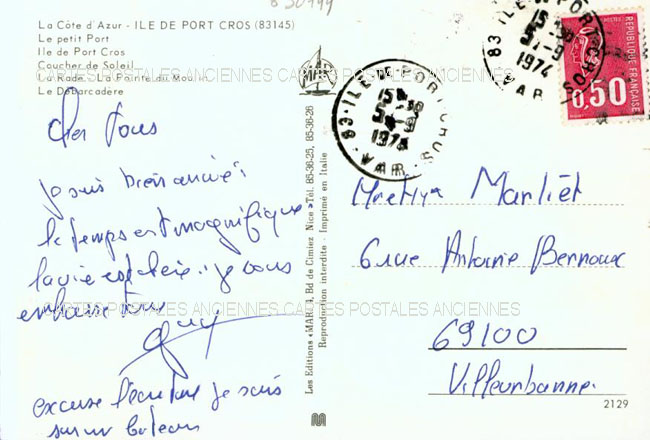 La Côte d'Azur - ILE DE PORT CROS (83145)
Le petit Port
Ile de Port Cros
Coucher de Soleil
La Rade - La Pointe du Moulin
Le Débarcadère
CARTES POSTALES ANCIENNES CARTES POSTALES ANCIENNES
MAR
Cher tous
je suis bien arrivé:
le temps est magnifique
la vie est chère.. je vous
embrasse tous
Guy
excuse l'écriture je suis
sur un bateau
CARTES POSTALES ANCIENNES CARTES POSTALES ANCIENNES
Les Editions «MAR», 9, Bd de Cimiez Nice » Tél. 85-36-25, 85-36-26
Reproduction interdite - Imprimé en Italie
83 ILE DE PORT CROS
15 H 30
5-9
1974
VAR
83 - ILE DE PORT CROS
15 H 30
5-9
1974
VAR
REPUBLIQUE FRANÇAISE
0,50
Mr et Mme Marliet
6 rue Antoine Bernoux
69100
Villeurbanne
2129